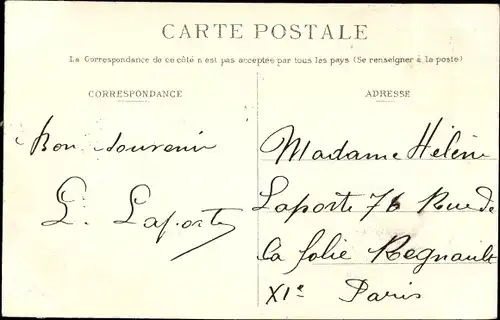 CARTE POSTALE
La Correspondance de ce côté n'est pas acceptée par tous les pays (Se renseigner à la poste)
CORRESPONDANCE
Bon souvenir
L. Laporte
ADRESSE
Madame Hélène
Laporte 76 Rue de
la folie Regnault
XIe Paris